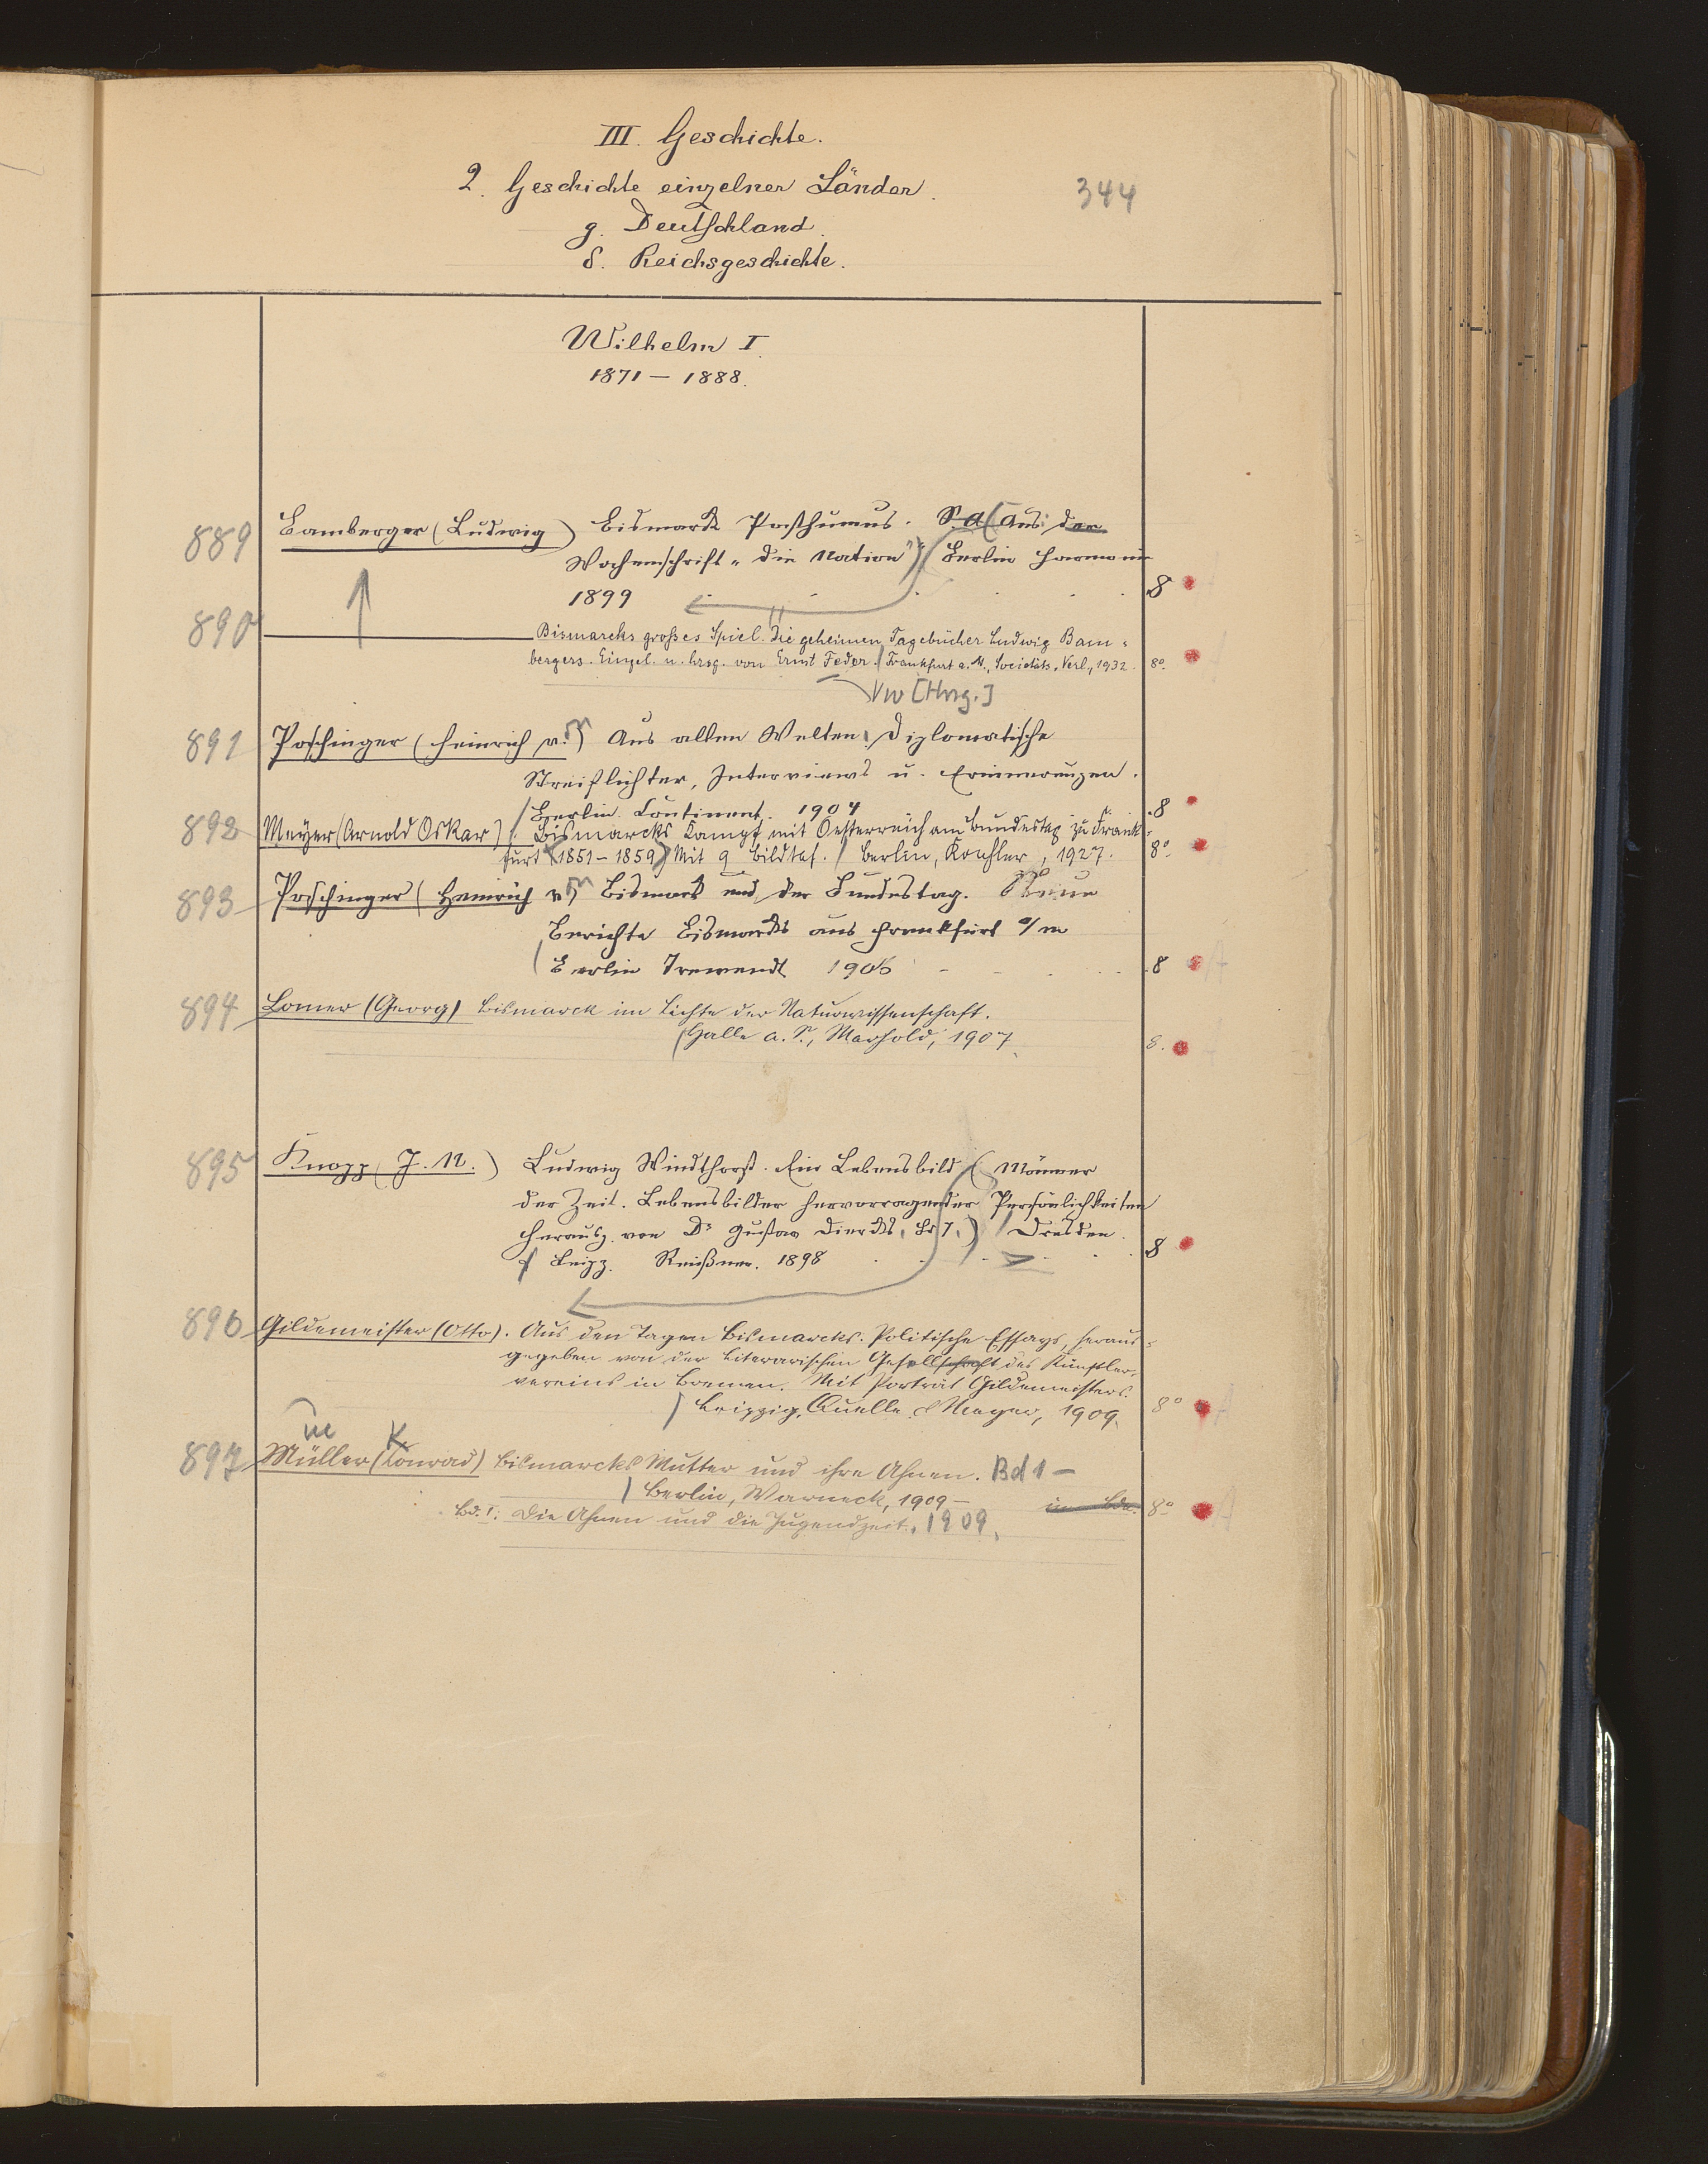 III. Geschichte.
2. Geschichte einzelner Länder.
344
g. Deutschland.
δ. Reichsgeschichte.
Wilhelm I.
1871 – 1888.
889 Bamberger (Ludwig) Bismarck Posthumus. S. A. (Aus: der
Wochenschrift „die Nation") Berlin Harmonie
1899 8
890 — Bismarcks großes Spiel. Die geheimen Tagebücher Ludwig Bam-
bergers. Eingel. u. hrsg. von Ernst Feder. / Frankfurt a. M., Societäts-Verl., 1932. 8°.
Vw [Hrsg.]
891 Poschinger (Heinrich v.) Aus alten Welten. Diplomatische
Streiflichter, Interviews u. Erinnerungen.
Berlin. Continent. 1904 8
892 Meyer (Arnold Oskar): Bismarcks Kampf mit Oesterreich am Bundestag zu Frank-
furt (1851–1859) Mit 9 Bildtaf. / Berlin, Koehler, 1927. 8°
893 Poschinger (Heinrich v.) Bismarck und der Bundestag. Neue
Berichte Bismarcks aus Frankfurt a/m
Berlin Trewendt 1906 8
894 Lomer (Georg) Bismarck im Lichte der Naturwissenschaft.
Halle a. S., Marhold, 1907 8.
895 Knopp (J. N.) Ludwig Windthorst. Ein Lebensbild (Männer
der Zeit. Lebensbilder hervorragender Persönlichkeiten
herausg. von Dr Gustav Diercks. Bd 1.) / Dresden.
Leipz. Reißner. 1898 8
896 Gildemeister (Otto). Aus den Tagen Bismarcks. Politische Essays, heraus-
gegeben von der Literarischen Gesellschaft des Künstler-
vereins in Bremen. Mit Porträt Gildemeisters.
Leipzig, Quelle & Meyer, 1909. 8°
897 Müller (Konrad) Bismarcks Mutter und ihre Ahnen. Bd 1 –
Berlin, Warneck, 1909 –
Bd. 1: Die Ahnen und die Jugendzeit. 1909. 8°